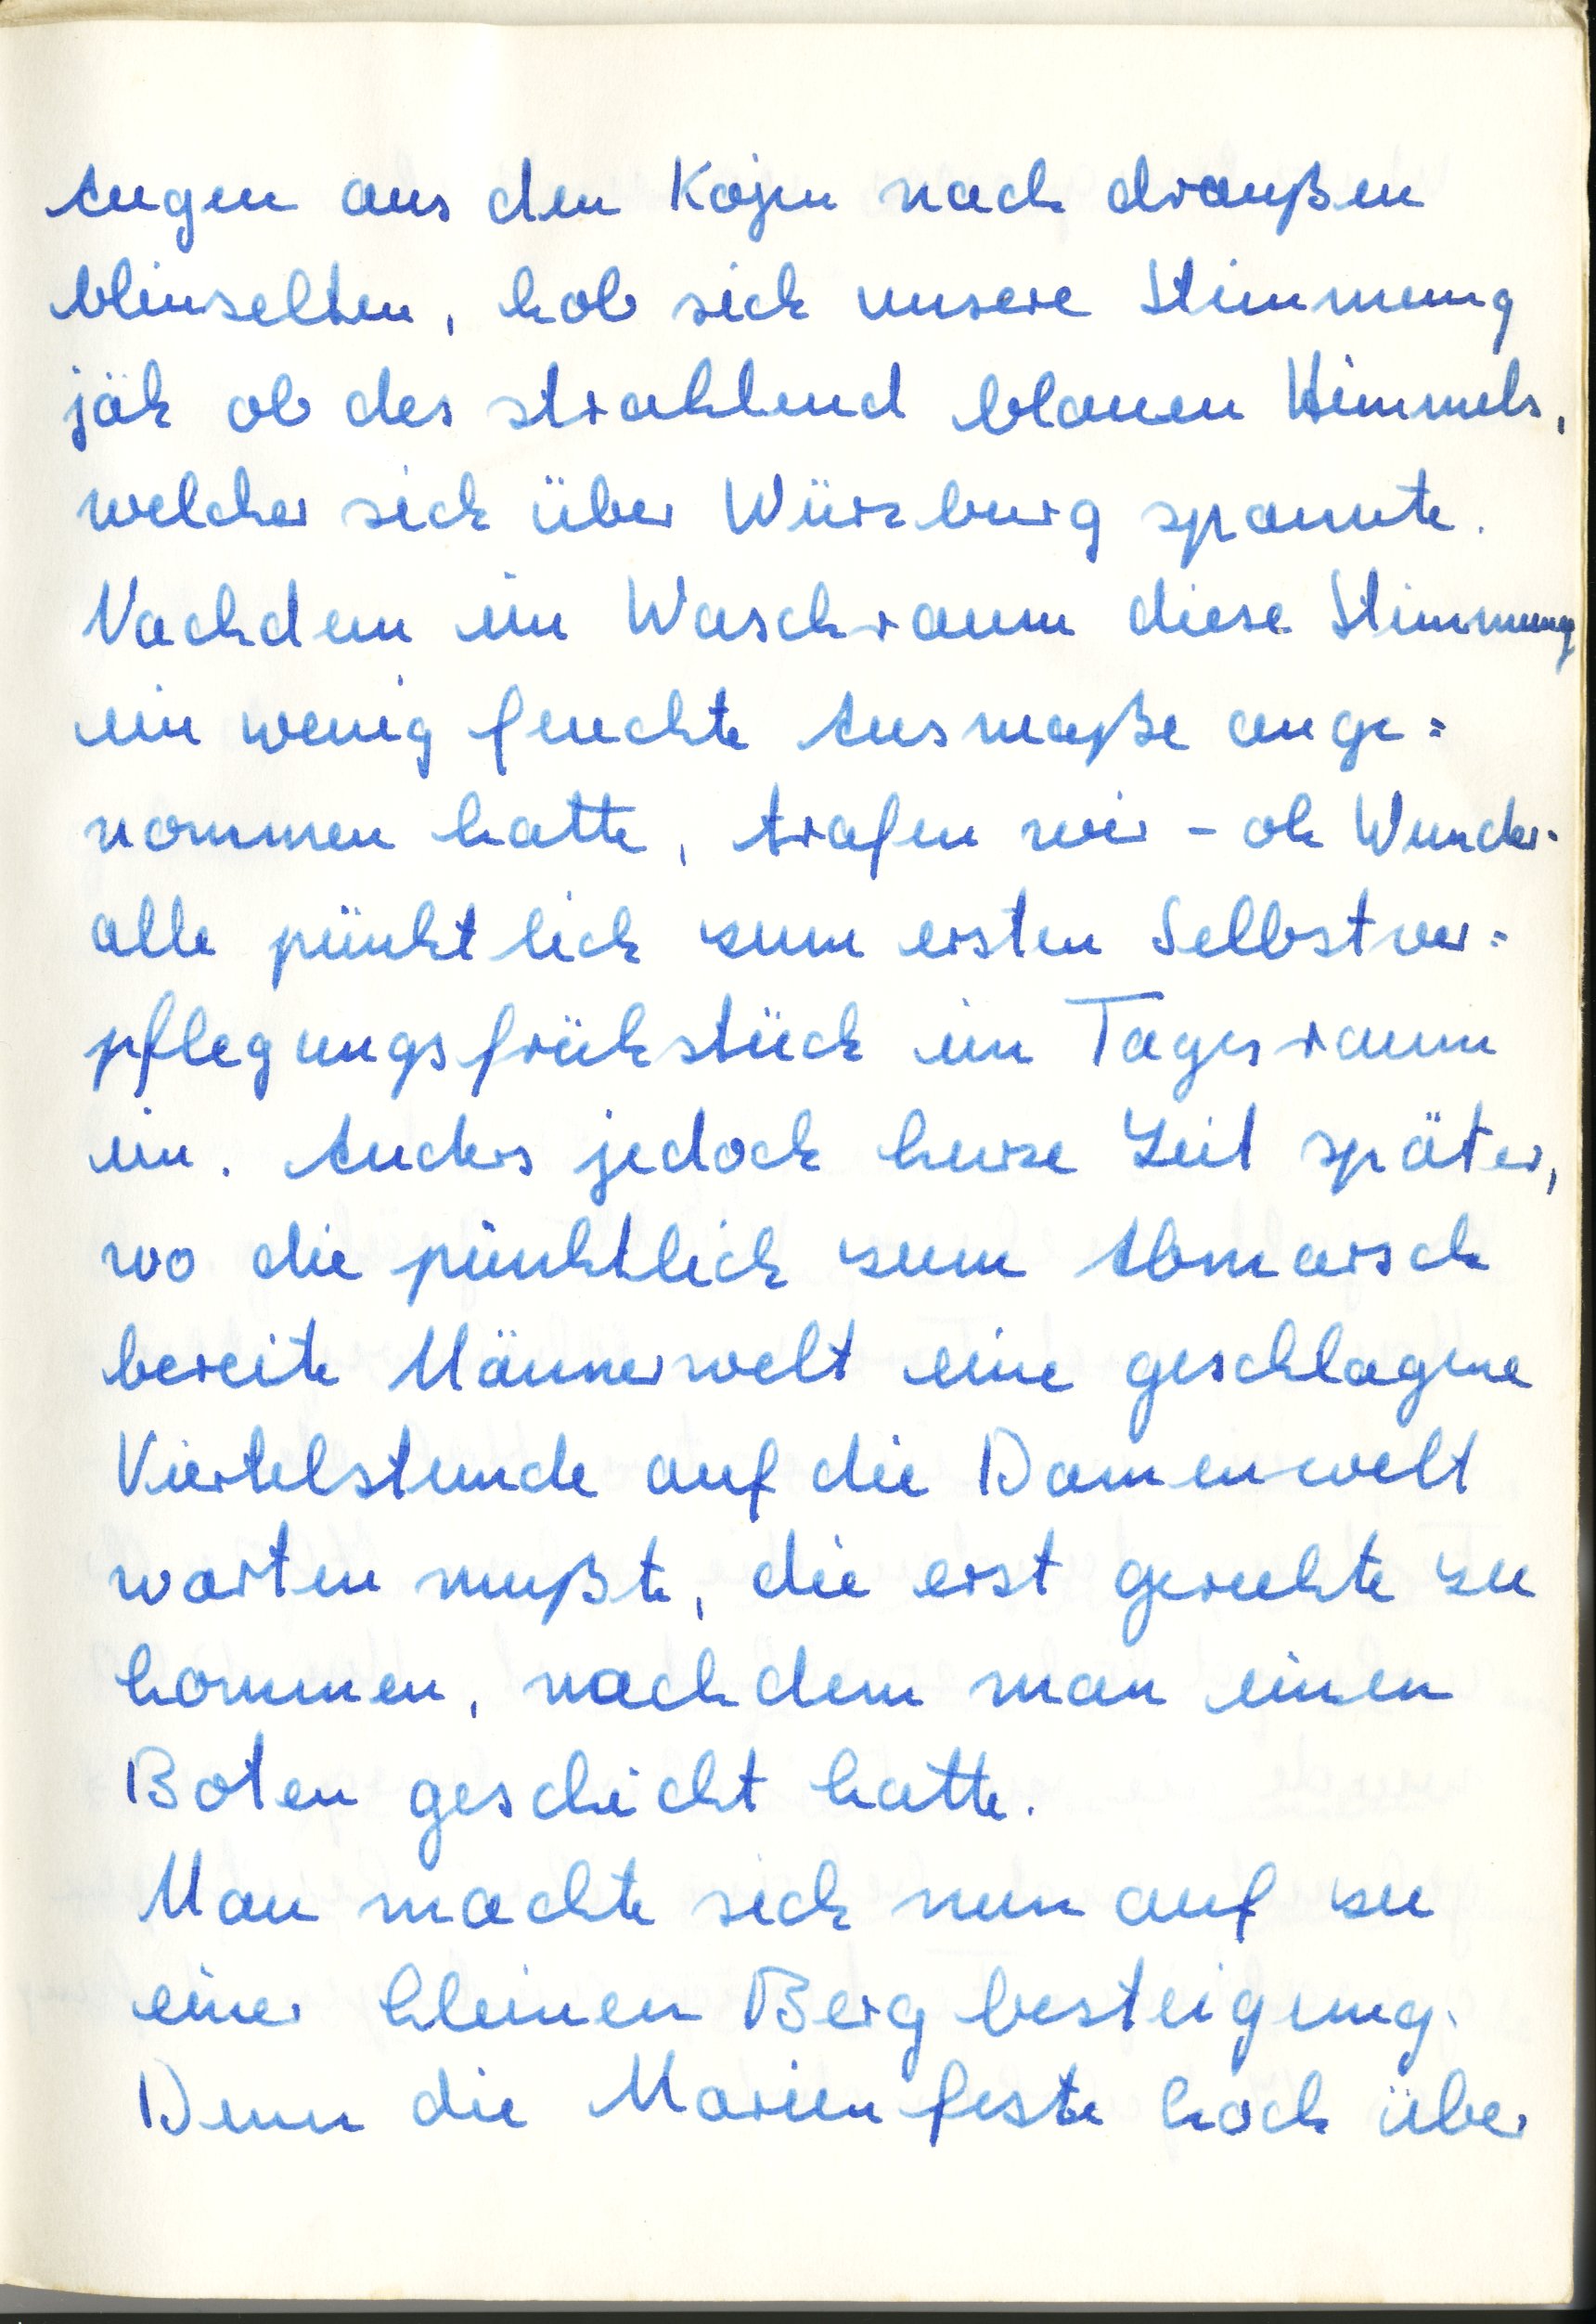 Augen aus den Kojen nach draußen
blinselten, hob sich unsere Stimmung
jäh ob des strahlend blauen Himmels,
welcher sich über Würzburg spannte.
Nachdem im Waschraum diese Stimmung
ein wenig feuchte Ausmaße ange=
nommen hatte, trafen wir - oh Wunder -
alle pünktlich zum ersten Selbstver=
pflegungsfrühstück im Tagesraum
ein. Anders jedoch kurze Zeit später,
wo die pünktlich zum Abmarsch
bereite Männerwelt eine geschlagene
Viertelstunde auf die Damenwelt
warten mußte, die erst geruhte zu
kommen, nachdem man einen
Boten geschickt hatte.
Man machte sich nun auf zu
einer kleinen Bergbesteigung.
Denn die Marienfeste hoch über